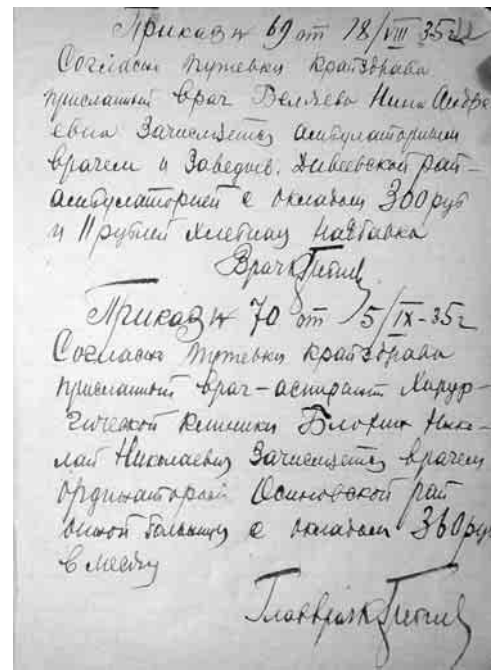 Приказ № 69 от 18/VIII 35г
Согласно путевки крайздрава
присланный врач Беляева Нина Андре
евна зачисляется амбулаторным
врачем и Заведыв. Дивеевской рай-
амбулаторией с окладом 300 руб
и 11 рублей хлебная надбавка
Врач
Приказ № 70 от 15/IX-35г
Согласно путевки крайздрава
присланный врач-аспирант Хирур-
гической клиники Блохин Нико-
лай Николаевич Зачисляется врачем
ординатором Осиновской рай
онной больницы с окладом 360 руб
в месяц
Главврач